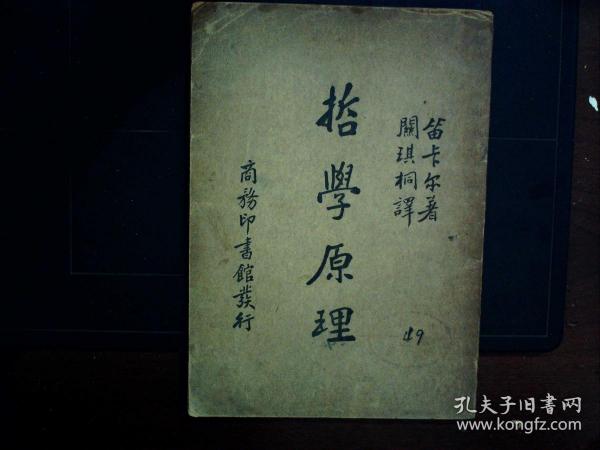 笛卡尔著
關琪桐譯
哲學原理
商務印書館發行
49
孔夫子旧書网
www.kongfz.com